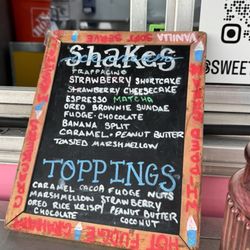 VANILLA
SOFT SERVE
Shakes
FRAPPACINO
STRAWBERRY SHORTCAKE
STRAWBERRY CHEESECAKE
ESPRESSO MATCHA
OREO BROWNIE SUNDAE
FUDGE·CHOCOLATE
BANANA SPLIT
CARAMEL·PEANUT BUTTER
TOASTED MARSHMELLOW
TOPPINGS
CARAMEL COCOA FUDGE NUTS
MARSHMELLOW STRAWBERRY
OREO RICE KRISPY PEANUT BUTTER
CHOCOLATE COCONUT
HOT FUDGE
@SWEET